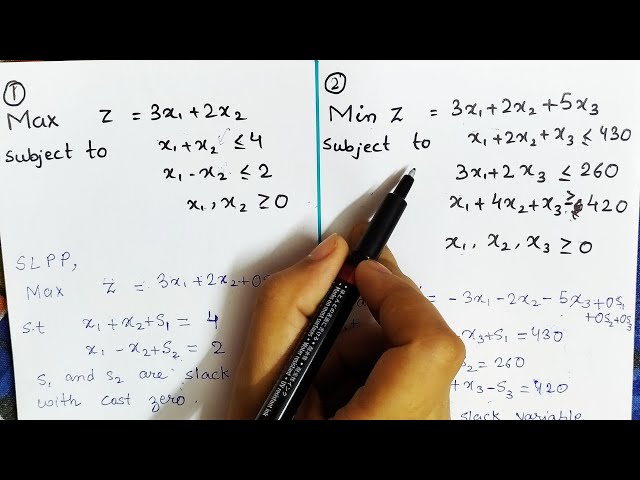 ①
Max Z = 3x₁+2x₂
subject to x₁+x₂ ≤4
x₁-x₂ ≤ 2
x₁, x₂ ≥0
SLPP,
Max Z = 3x₁+2x₂+0S
s.t x₁+x₂+S₁ = 4
x₁-x₂+S₂ = 2
S₁ and S₂ are slack
with cost zero.
②
Min Z = 3x₁+2x₂+5x₃
subject to x₁+2x₂+x₃ ≤ 430
3x₁+2x₃ ≤ 260
x₁+4x₂+x₃ ≥ 420
x₁, x₂, x₃ ≥ 0
= -3x₁-2x₂-5x₃+0S₁
+0S₂+0S₃
x₃+S₁ = 430
S₂ = 260
x₃-S₃ = 420
slack variable